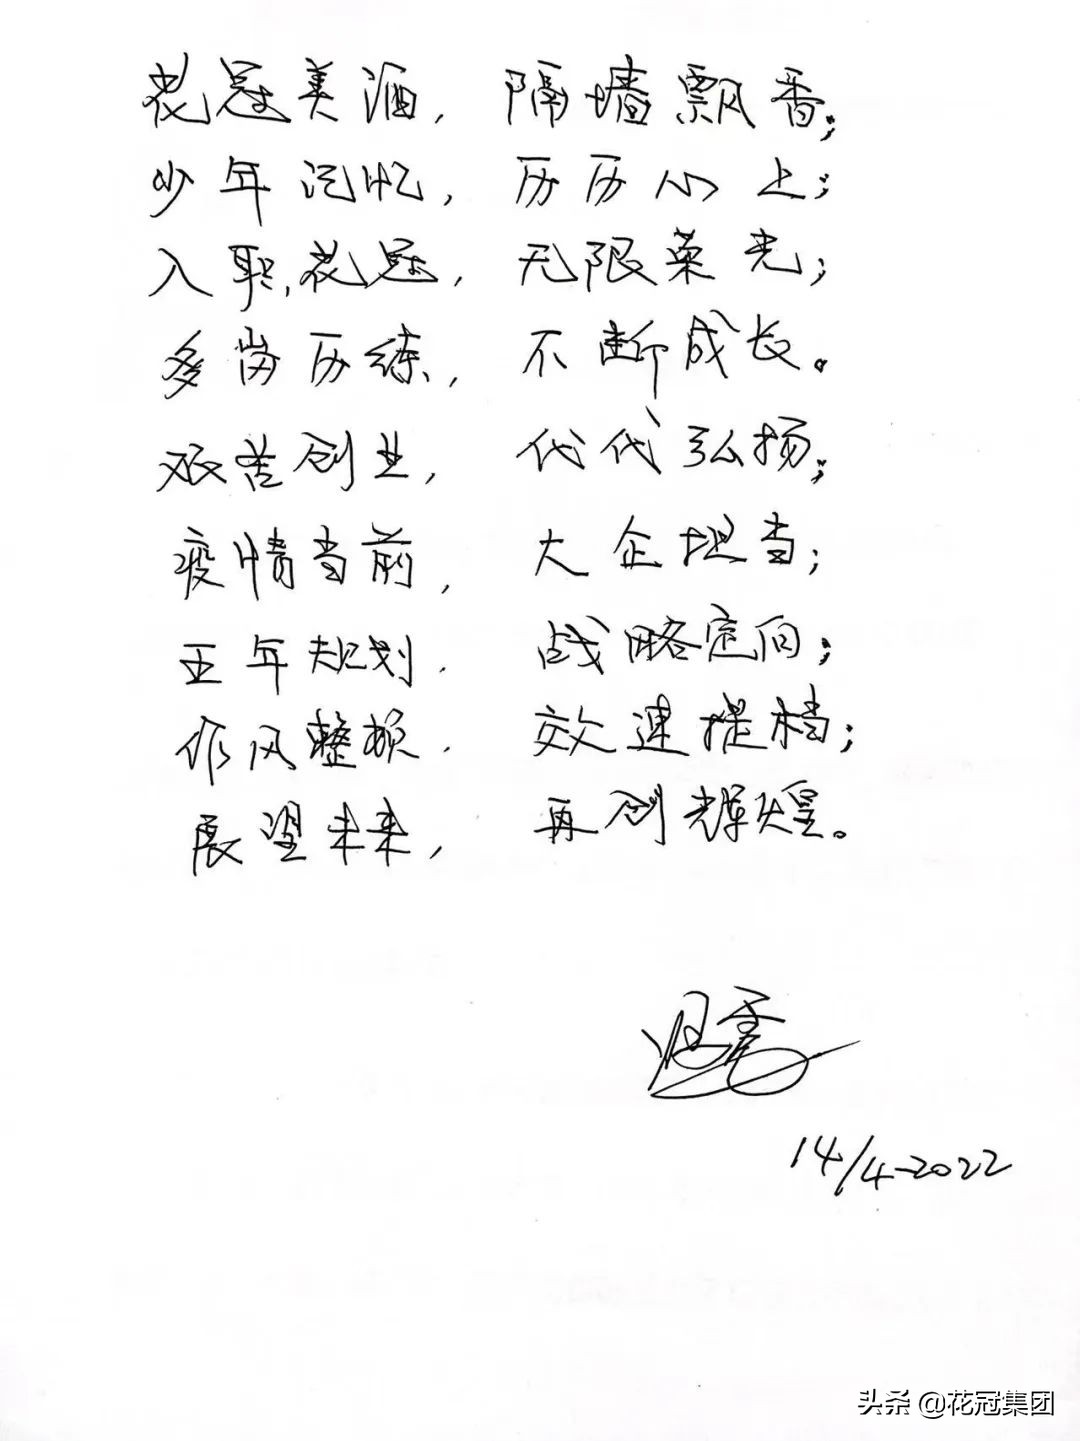 花冠美酒，隔墙飘香；
少年记忆，历历心上；
入职花冠，无限荣光；
多岗历练，不断成长。
艰苦创业，代代弘扬；
疫情当前，大企担当；
五年规划，战略定向；
作风整顿，效速提档；
展望未来，再创辉煌。
14/4-2022
头条 @花冠集团